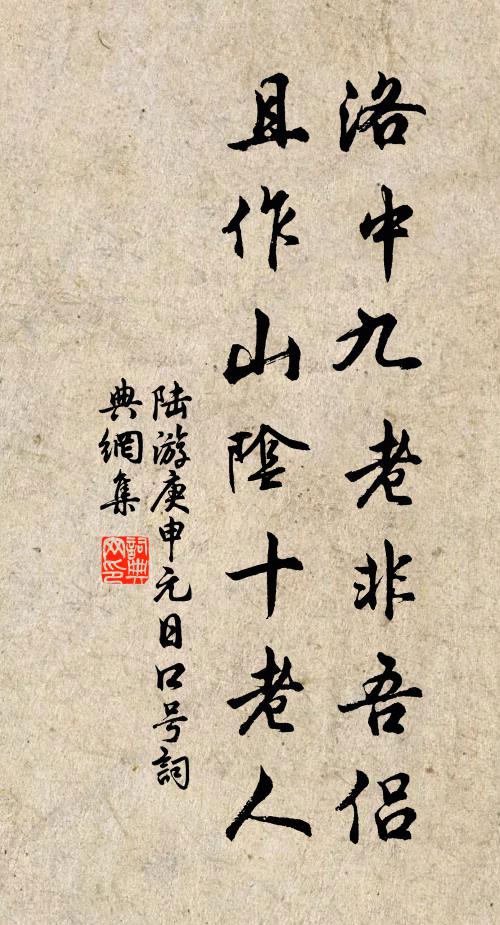 洛中九老非吾侣
且作山陰十老人
陆游庚申元日口号詞
典網集
詞典
网印